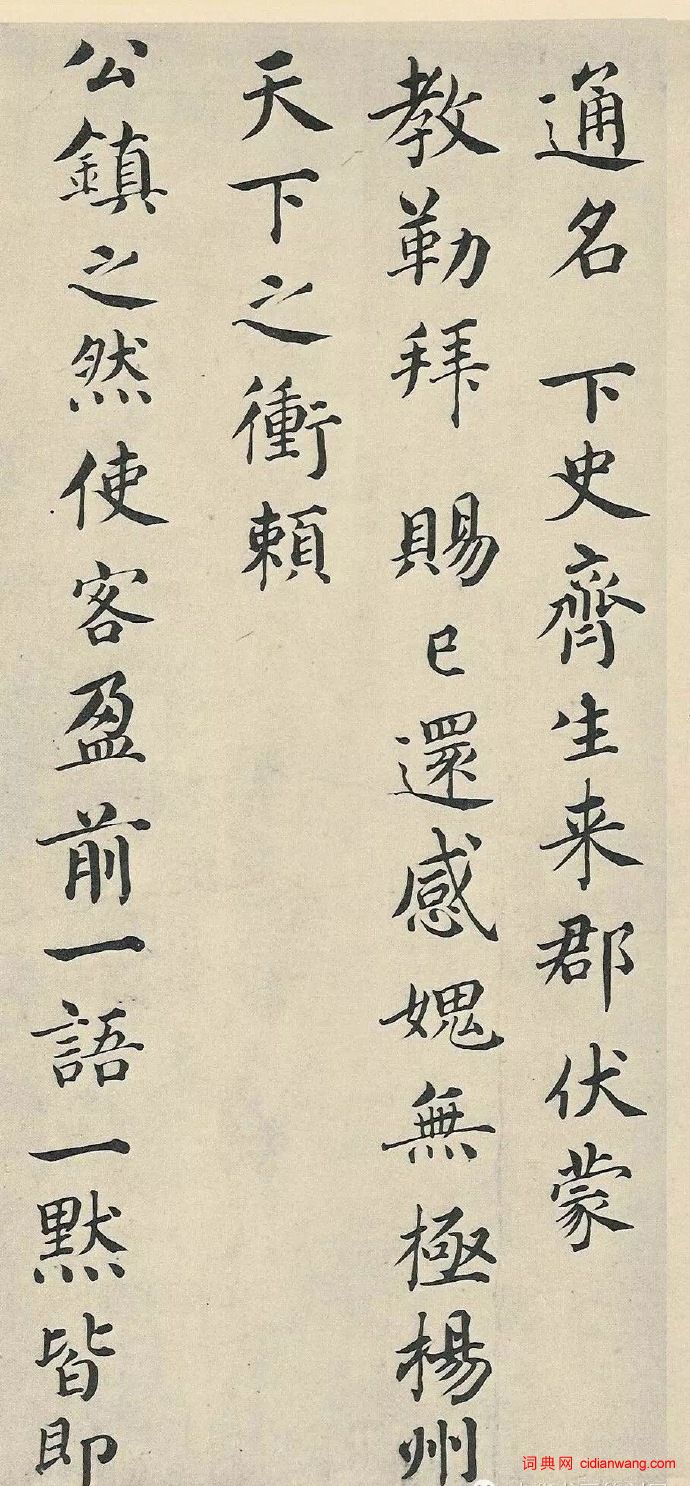 通名 下史齊生来郡伏蒙
教勒拜 賜已還感媿無極楊州
天下之衝頼
公鎮之然使客盈前一語一黙皆即
词典网 cidianwang.com